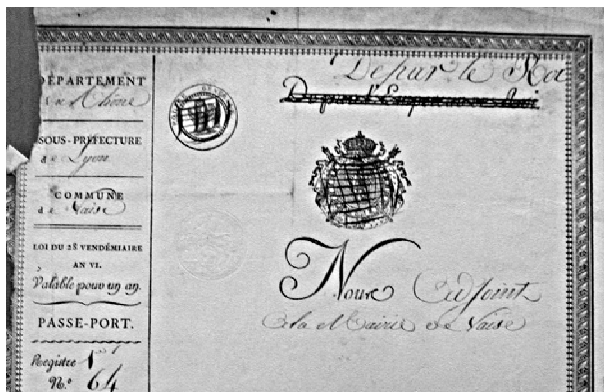 DÉPARTEMENT
du Rhône
SOUS-PRÉFECTURE
de Lyon
COMMUNE
de Vaise
LOI DU 28 VENDÉMIAIRE
AN VI.
Valable pour un an.
PASSE-PORT.
Registre 1
N.º 64
De par le Roi
De par l'Empereur
Nous Adjoint
de la Mairie de Vaise